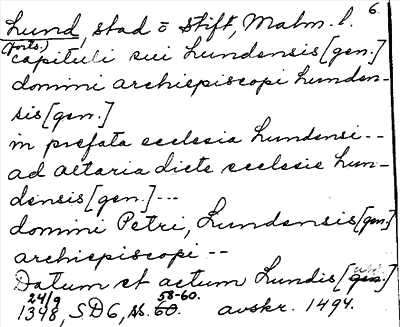 6.
Lund, stad o stift, Malm. l.
(forts.)
capituli sui lundensis [gen.]
domini archiepiscopi lunden-
sis [gen.]
in prefata ecclesia lundensi --
ad altaria dicte ecclesie lun-
densis [gen.] ---
domini Petri, Lundensis [gen.]
archiepiscopi --
Datum et actum Lundis [abl.]
24/9 58-60.
1398, SD6, ss. 60. avskr. 1494.